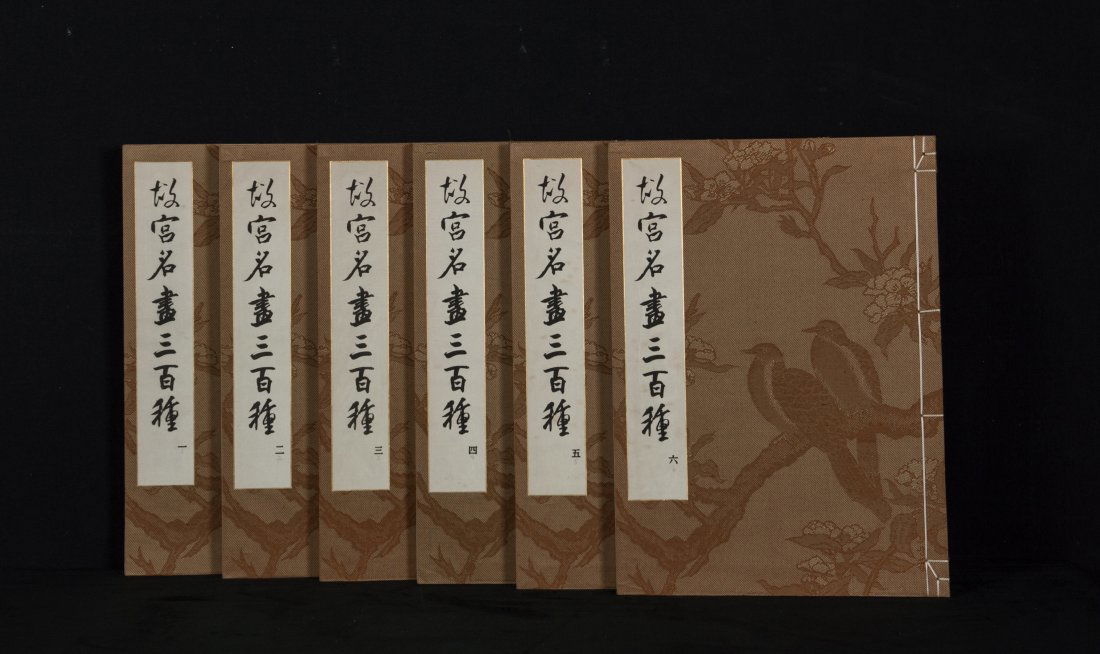 故宮名畫三百種
一
故宮名畫三百種
二
故宮名畫三百種
三
故宮名畫三百種
四
故宮名畫三百種
五
故宮名畫三百種
六